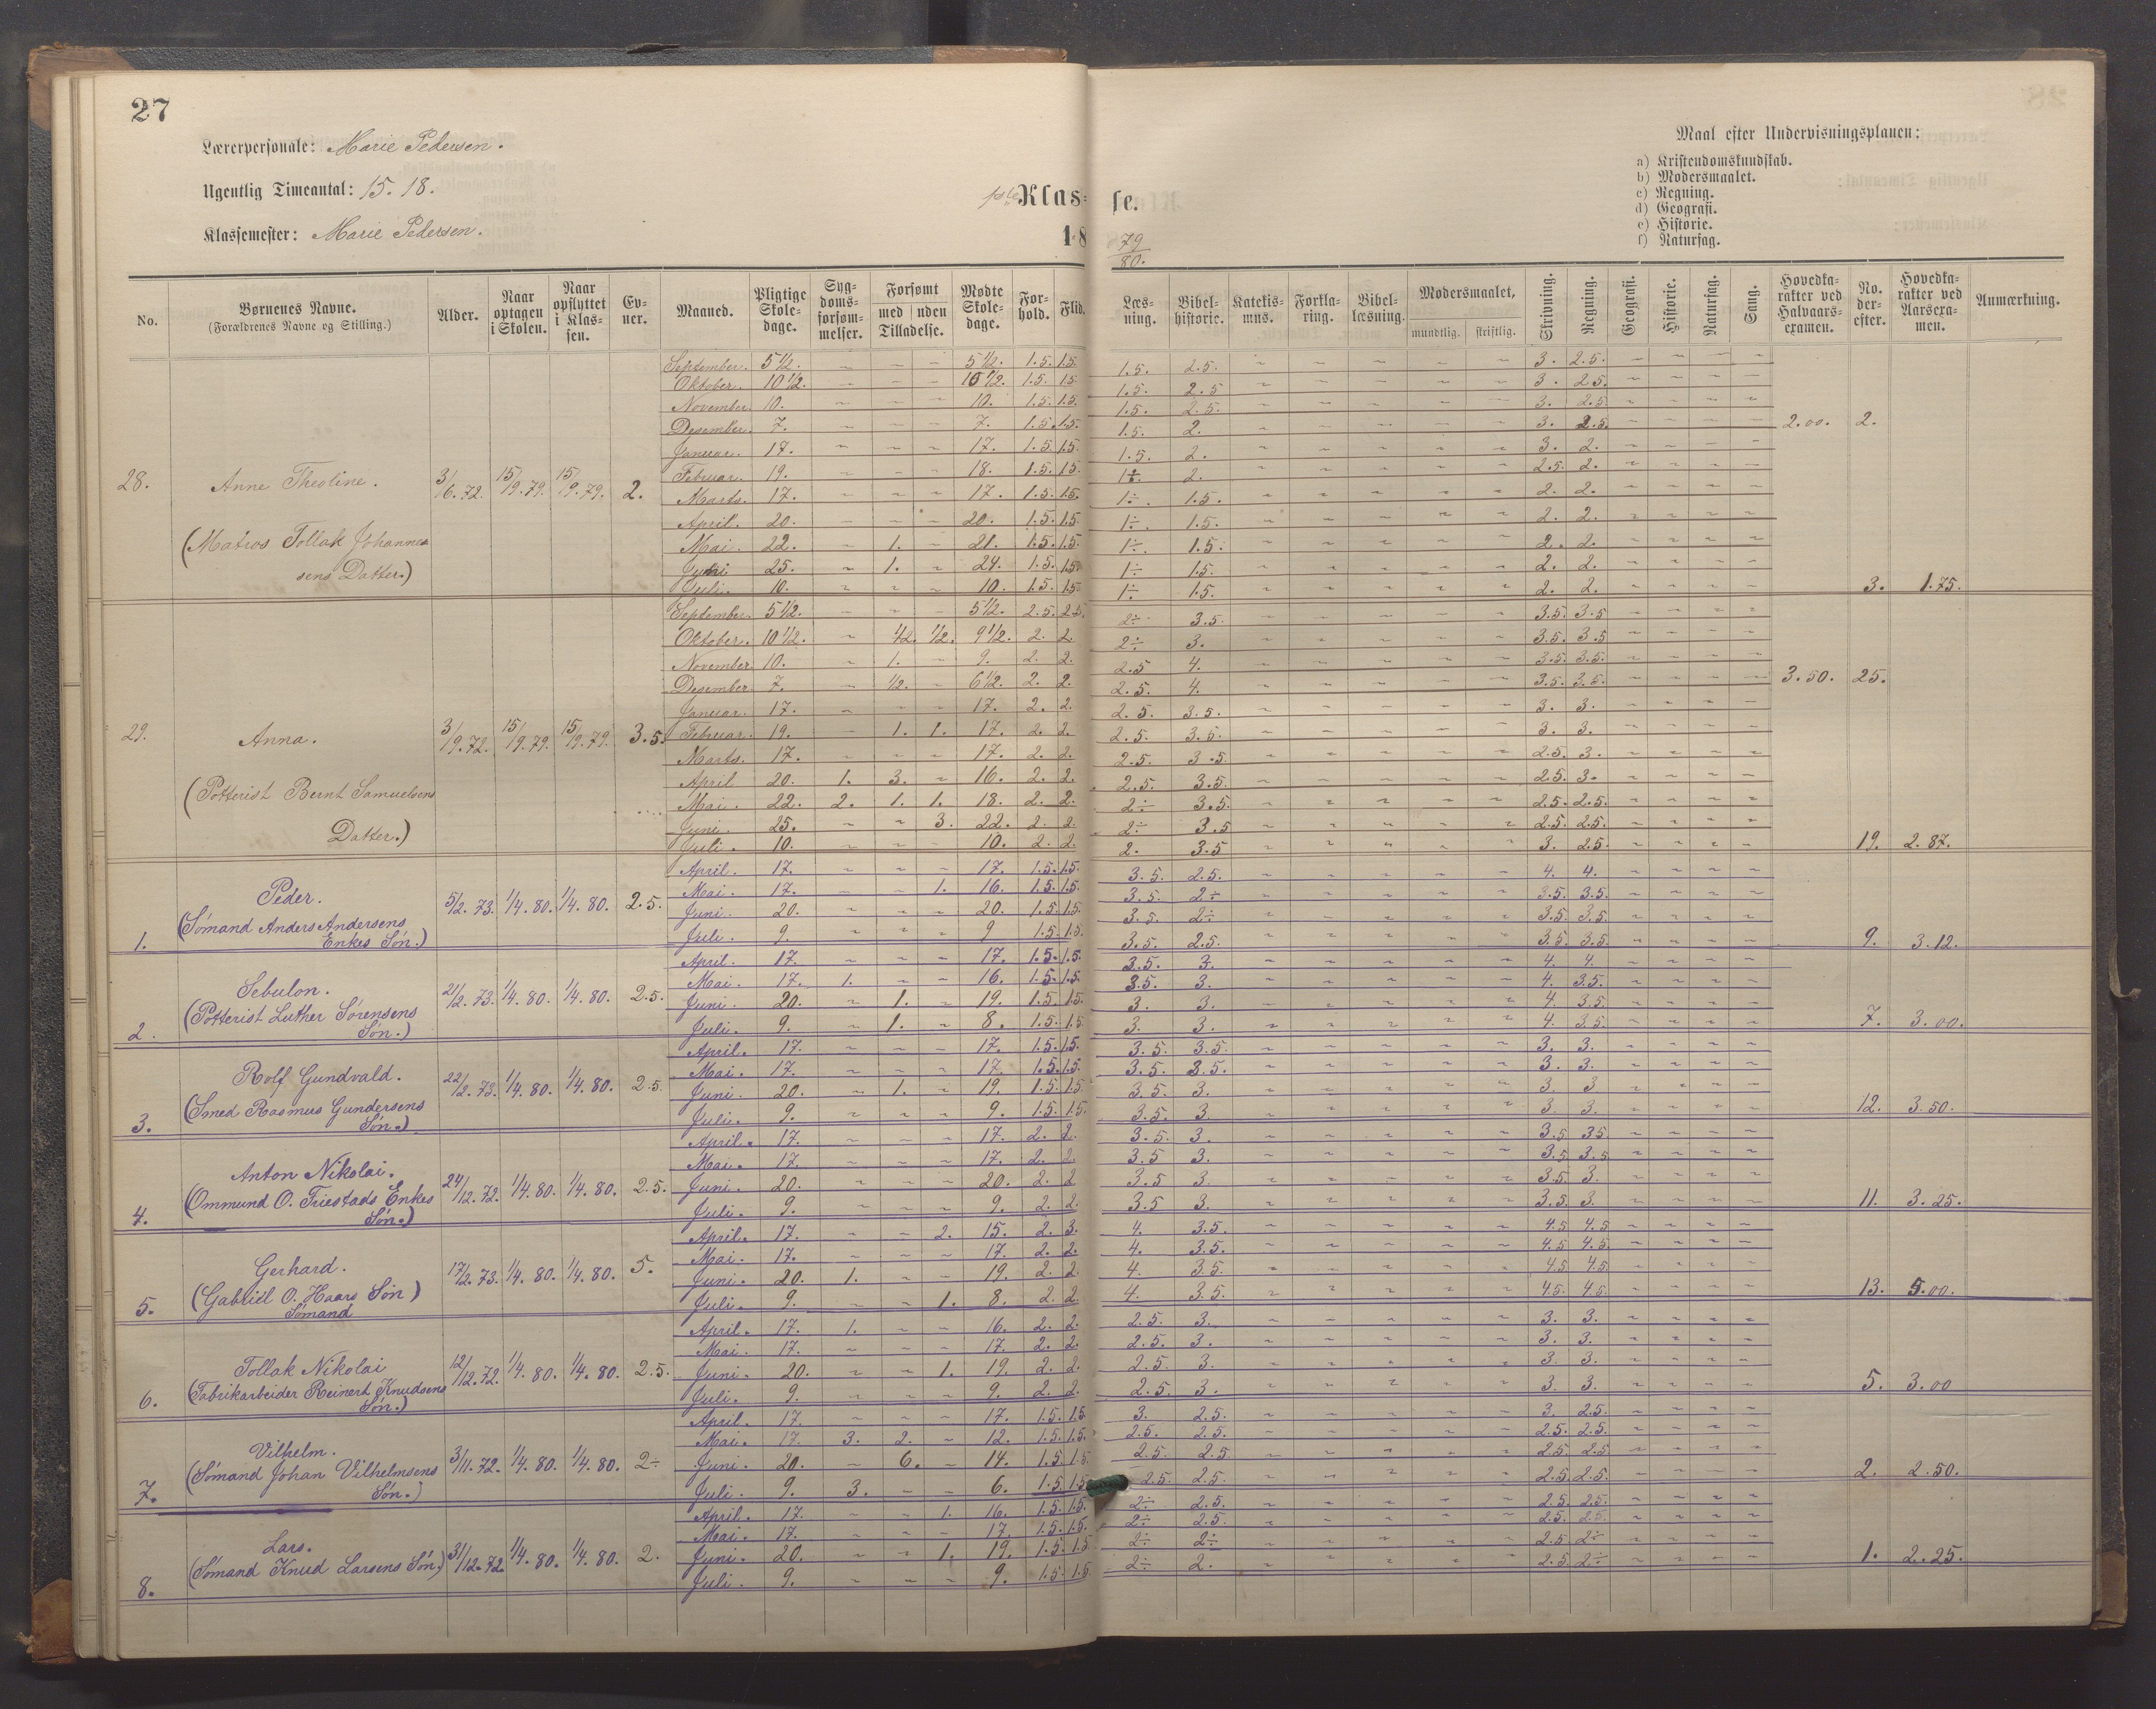 27
Lærerpersonale: Marie Pedersen.
Ugentlig Timeantal: 15. 18.
Klassemester: Marie Pedersen.
1ste Klas- se.
18 79/80.
Maal efter Undervisningsplanen:
a) Kristendomskundskab.
b) Modersmaalet.
c) Regning.
d) Geografi.
e) Historie.
f) Naturfag.
No. | Børnenes Navne. (Forældrenes Navne og Stilling.) | Alder. | Naar optagen i Skolen. | Naar opflyttet i Klassen. | Evner. | Maaned. | Pligtige Skoledage. | Sygdomsforsømmelser. | Forsømt med uden Tilladelse. | Mødte Skoledage. | Forhold. | Flid. | Læsning. | Bibelhistorie. | Katekismus. | Forklaring. | Bibellæsning. | Modersmaalet, mundtlig. skriftlig. | Skrivning. | Regning. | Geografi. | Historie. | Naturfag. | Sang. | Hovedkarakter ved Halvaarsexamen. | No. derefter. | Hovedkarakter ved Aarsexamen. | Anmærkning.
28. Anne Theoline. 3/6. 72. 15/9. 79. 15/9. 79. 2.
(Matros Tollak Johannessens Datter.)
September. 5 1/2. ~ ~ ~ 5 1/2. 1.5. 1.5. 1.5. 2.5. 3. 2.5.
Oktober. 10 1/2. ~ ~ ~ 10 1/2. 1.5. 1.5 1.5. 2.5 3. 2.5.
November. 10. ~ ~ ~ 10. 1.5. 1.5. 1.5. 2.5. 3. 2.5.
Desember. 7. ~ ~ ~ 7. 1.5. 1.5. 1.5. 2. 3. 2.5. 2.00. 2.
Januar. 17. ~ ~ ~ 17. 1.5. 1.5 1.5. 2. 3. 2.
Februar. 19. ~ ~ ~ 18. 1.5. 1.5. 1÷. 2. 2.5. 2.
Marts. 17. ~ ~ ~ 17. 1.5. 1.5. 1÷. 1.5. 2. 2.
April. 20. ~ ~ ~ 20. 1.5. 1.5. 1÷. 1.5. 2. 2.
Mai. 22. ~ 1. ~ 21. 1.5. 1.5. 1÷. 1.5. 2. 2.
Juni 25. ~ 1. ~ 24. 1.5. 1.5. 1÷. 1.5. 2. 2.
Juli. 10. ~ ~ ~ 10. 1.5. 1.5 1÷. 1.5. 2. 2. 3. 1.75.
29. Anna. 3/9. 72. 15/9. 79. 15/9. 79. 3.5.
(Potterist Bernt Samuelsens Datter.)
September. 5 1/2. ~ ~ ~ 5 1/2. 2.5. 2.5. 2÷ 3.5. 3.5. 3.5
Oktober. 10 1/2. ~ 1/2. 1/2. 9 1/2. 2. 2. 2÷ 3. 3.5. 3.5
November. 10. ~ 1. ~ 9. 2. 2. 2.5 4. 3.5. 3.5.
Desember. 7. ~ 1/2. ~ 6 1/2. 2. 2. 2.5. 4. 3.5. 3.5. 3.50. 25.
Januar. 17. ~ ~ ~ 17. 2. 2. 2.5. 3.5. 3. 3.
Februar. 19. ~ 1. 1. 17. 2. 2. 2.5. 3.5. 3. 3.
Marts. 17. ~ ~ ~ 17. 2. 2. 2.5. 3.5. 2.5. 3.
April 20. 1. 3. ~ 16. 2. 2. 2.5. 3.5. 2.5. 3.
Mai. 22. 2. 1. 1. 18. 2. 2. 2÷ 3.5. 2.5. 2.5.
Juni. 25. ~ ~ 3. 22. 2. 2. 2÷ 3.5 2.5. 2.5.
Juli. 10. ~ ~ ~ 10. 2. 2. 2. 3.5 3. 2.5. 19. 2.87.
1. Peder. 5/2. 73. 1/4. 80. 1/4. 80. 2.5.
(Sømand Anders Andersens Enkes Søn.)
April. 17. ~ ~ ~ 17. 1.5. 1.5. 3.5. 2.5. 4. 4.
Mai. 17. ~ ~ 1. 16. 1.5. 1.5. 3.5. 2÷ 3.5. 3.5.
Juni. 20. ~ ~ ~ 20. 1.5. 1.5. 3.5. 2÷ 3.5 3.5.
Juli. 9. ~ ~ ~ 9 1.5. 1.5. 3.5. 2.5. 3.5. 3.5. 9. 3.12.
2. Sebulon. 21/2. 73. 1/4. 80. 1/4. 80. 2.5.
(Potterist Luther Sørensens Søn.)
April. 17. ~ ~ ~ 17. 1.5. 1.5. 3.5. 3. 4. 4.
Mai. 17. 1. ~ ~ 16. 1.5. 1.5 3.5. 3. 4. 3.5.
Juni. 20. ~ 1. ~ 19. 1.5. 1.5 3. 3. 4. 3.5.
Juli. 9. ~ 1. ~ 8. 1.5. 1.5 3. 3. 4. 3.5. 7. 3.00.
3. Rolf Gundvald. 22/2. 73. 1/4. 80. 1/4. 80. 2.5.
(Smed Rasmus Gundersens Søn.)
April. 17. ~ ~ ~ 17. 1.5. 1.5. 3.5. 3.5. 3. 3.
Mai. 17. ~ ~ ~ 17. 1.5. 1.5. 3.5. 3.5. 3. 3.
Juni. 20. ~ 1. ~ 19. 1.5. 1.5 3.5. 3. 3. 3
Juli. 9. ~ ~ ~ 9. 1.5. 1.5. 3.5. 3. 3. 3. 12. 3.50.
4. Anton Nikolai. 24/12. 72. 1/4. 80. 1/4. 80. 2.5.
(Ommund O. Friestads Enkes Søn.)
April. 17. ~ ~ ~ 17. 2. 2. 3.5. 3. 3.5 3.5
Mai. 17. ~ ~ ~ 17. 2. 2. 3.5 3. 3.5 3.5
Juni. 20. ~ ~ ~ 20. 2. 2 3.5 3. 3.5 3.
Juli. 9. ~ ~ ~ 9. 2. 2. 3.5 3. 3.5. 3. 11. 3.25.
5. Gerhard. 17/2. 73. 1/4. 80. 1/4. 80. 5.
(Gabriel O. Haars Søn)
Sømand
April. 17. ~ ~ 2. 15. 2. 3. 4. 3.5. 4.5 4.5
Mai. 17. ~ ~ ~ 17. 2. 2. 4. 3.5. 4.5 4.5
Juni. 20. 1. ~ ~ 19. 2. 2. 4. 3.5. 4.5 4.5
Juli. 9. ~ ~ 1. 8. 2. 2. 4. 3.5. 4.5. 4.5. 13. 5.00.
6. Tollak Nikolai 12/12. 72. 1/4. 80. 1/4. 80. 2.5.
(Fabrikarbeider Reinert Knudsens Søn.)
April. 17. 1. ~ ~ 16. 2. 2. 2.5. 3. 3. 3.
Mai. 17. ~ ~ ~ 17. 2. 2. 2.5. 3. 3. 3.
Juni. 20. ~ ~ 1. 19. 2. 2. 2.5. 3. 3. 3.
Juli. 9. ~ ~ ~ 9. 2. 2. 2.5. 3. 3. 3. 5. 3.00
7. Vilhelm. 3/11. 72. 1/4. 80. 1/4. 80. 2÷
(Sømand Johan Vilhelmsens Søn.)
April. 17. ~ ~ ~ 17. 1.5. 1.5. 3. 2.5. 3. 2.5.
Mai. 17. 3. 2. ~ 12. 1.5. 1.5. 2.5. 2.5. 2.5. 2.5.
Juni. 20. ~ 6. ~ 14. 1.5 1.5 2.5. 2.5 2.5. 2.5
Juli. 9. 3. ~ ~ 6. 1.5 1.5 2.5. 2.5. 2.5. 2.5. 2. 2.50.
8. Lars. 31/12. 72. 1/4. 80. 1/4. 80. 2.
(Sømand Knud Larsens Søn.)
April. 17. ~ ~ 1. 16. 1.5. 1.5. 2÷ 2.5. 2.5. 2.5.
Mai. 17. ~ ~ ~ 17. 1.5. 1.5. 2÷ 2.5. 2.5. 2.5.
Juni. 20. ~ ~ 1. 19. 1.5. 1.5 2÷ 2÷ 2.5 2÷
Juli. 9. ~ ~ ~ 9. 1.5. 1.5 2÷ 2. 2.5. 2÷ 1. 2.25.